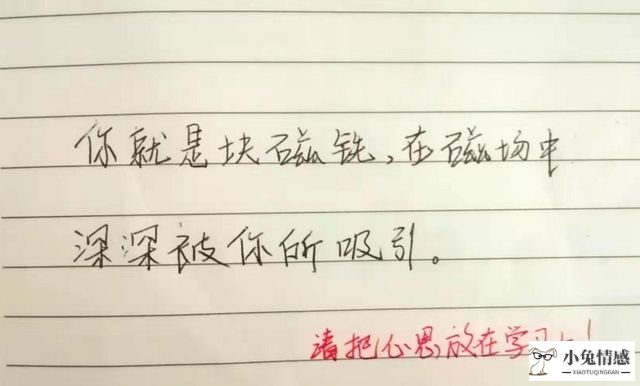 你就是块磁铁,在磁场中
深深被你所吸引。
请把心思放在学习上!
小兔情感
XIAOTUQINGGAN